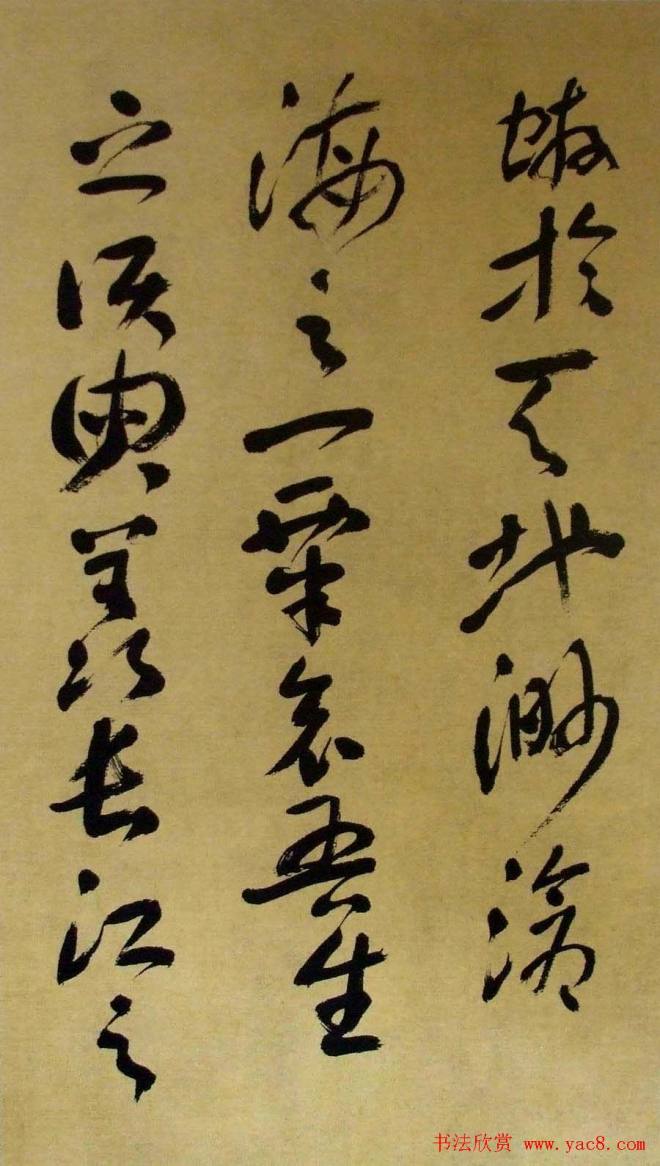 蝣於天地渺滄
海之一粟哀吾生
之須臾羨長江之
书法欣赏 www.yac8.com